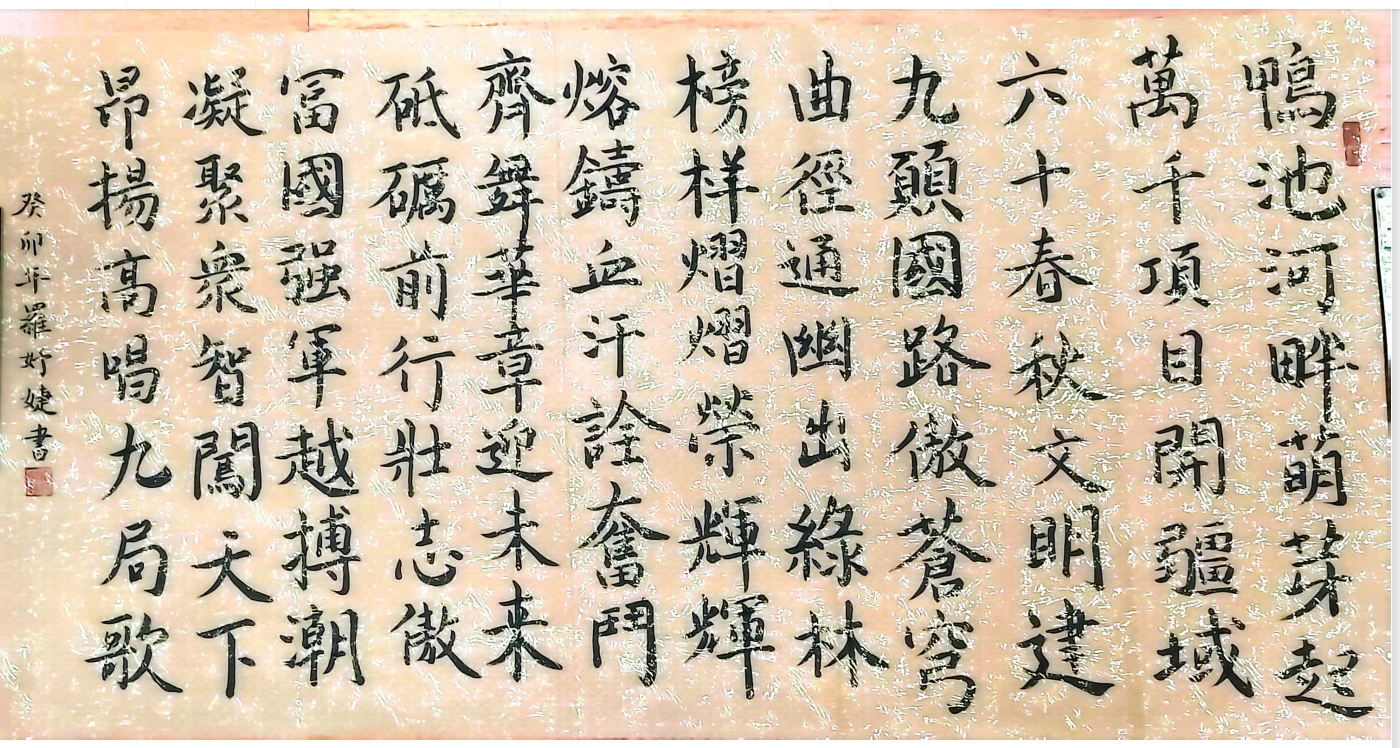 鴨池河畔萌芽起
萬千項目開疆域
六十春秋文明建
九顛國路傲蒼穹
曲徑通幽出綠林
榜样熠熠榮輝輝
熔鑄血汗詮奮鬥
齊舞華章迎未来
砥礪前行壯志傲
冨國强軍越搏潮
凝聚衆智闖天下
昂揚高唱九局歌
癸卯年羅婷婕書